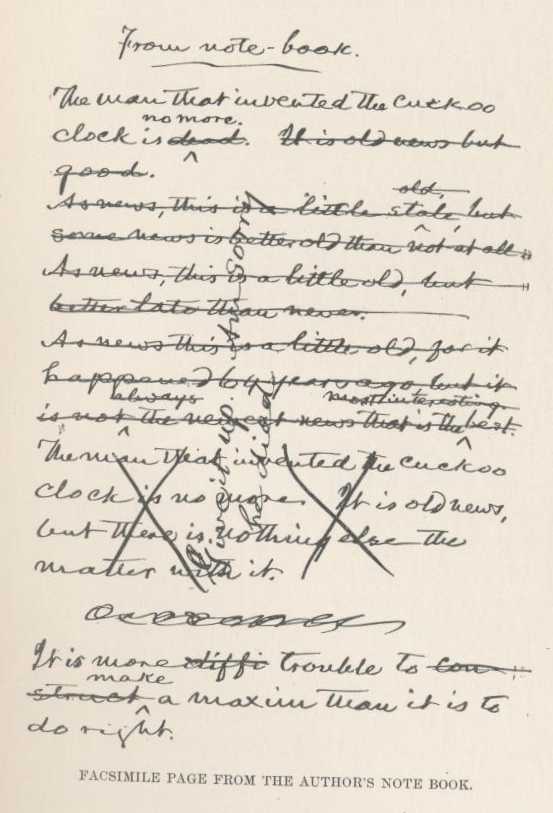 From note-book.
The man that invented the cuckoo
no more.
clock is dead. It is old news but
good.
old,
As news, this is a little stale, but
some news is better old than not at all
As news, this is a little old, but
better late than never.
As news this is a little old, for it
happened 64 years ago, but it
always most interesting
is not the newest news that is the best.
The man that invented the cuckoo
clock is no more. It is old news,
but there is nothing else the
matter with it.
Give it up.
he died
It is more diffi trouble to con-
make
struct a maxim than it is to
do right.
FACSIMILE PAGE FROM THE AUTHOR'S NOTE BOOK.